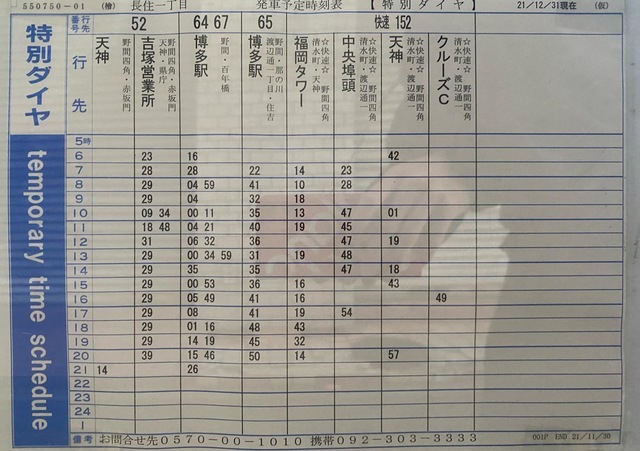 550750-01 (檜) 長住一丁目 発車予定時刻表 【特別ダイヤ】 21/12/31現在 (仮)
特別ダイヤ temporary time schedule
番号 行先 52 64 67 65 快速 152
行先
天神 野間四角・赤坂門
吉塚営業所 野間四角・赤坂門 天神・県庁
博多駅 野間・百年橋
博多駅 野間・那の川 渡辺通一丁目・住吉
福岡タワー ☆快速☆ 野間四角 清水町・天神
中央埠頭 ☆快速☆ 野間四角 清水町・渡辺通一
天神 ☆快速☆ 野間四角 清水町・渡辺通一
クルーズC ☆快速☆ 野間四角 清水町・渡辺通一
5時
6 23 16 42
7 28 28 22 14 23
8 29 04 59 41 10 28
9 29 04 32 18
10 09 34 00 11 35 13 47 01
11 18 48 04 21 40 19 45
12 31 06 32 36 47 19
13 29 00 34 59 31 19 48
14 29 35 35 47 18
15 29 00 53 36 16 43
16 29 05 49 41 16 49
17 29 08 41 19 54
18 29 01 16 48 43
19 29 14 19 45 32
20 39 15 46 50 14 57
21 14 26
22
23
24
1
備考 お問合せ先0570-00-1010 携帯092-303-3333 001P END 21/11/30